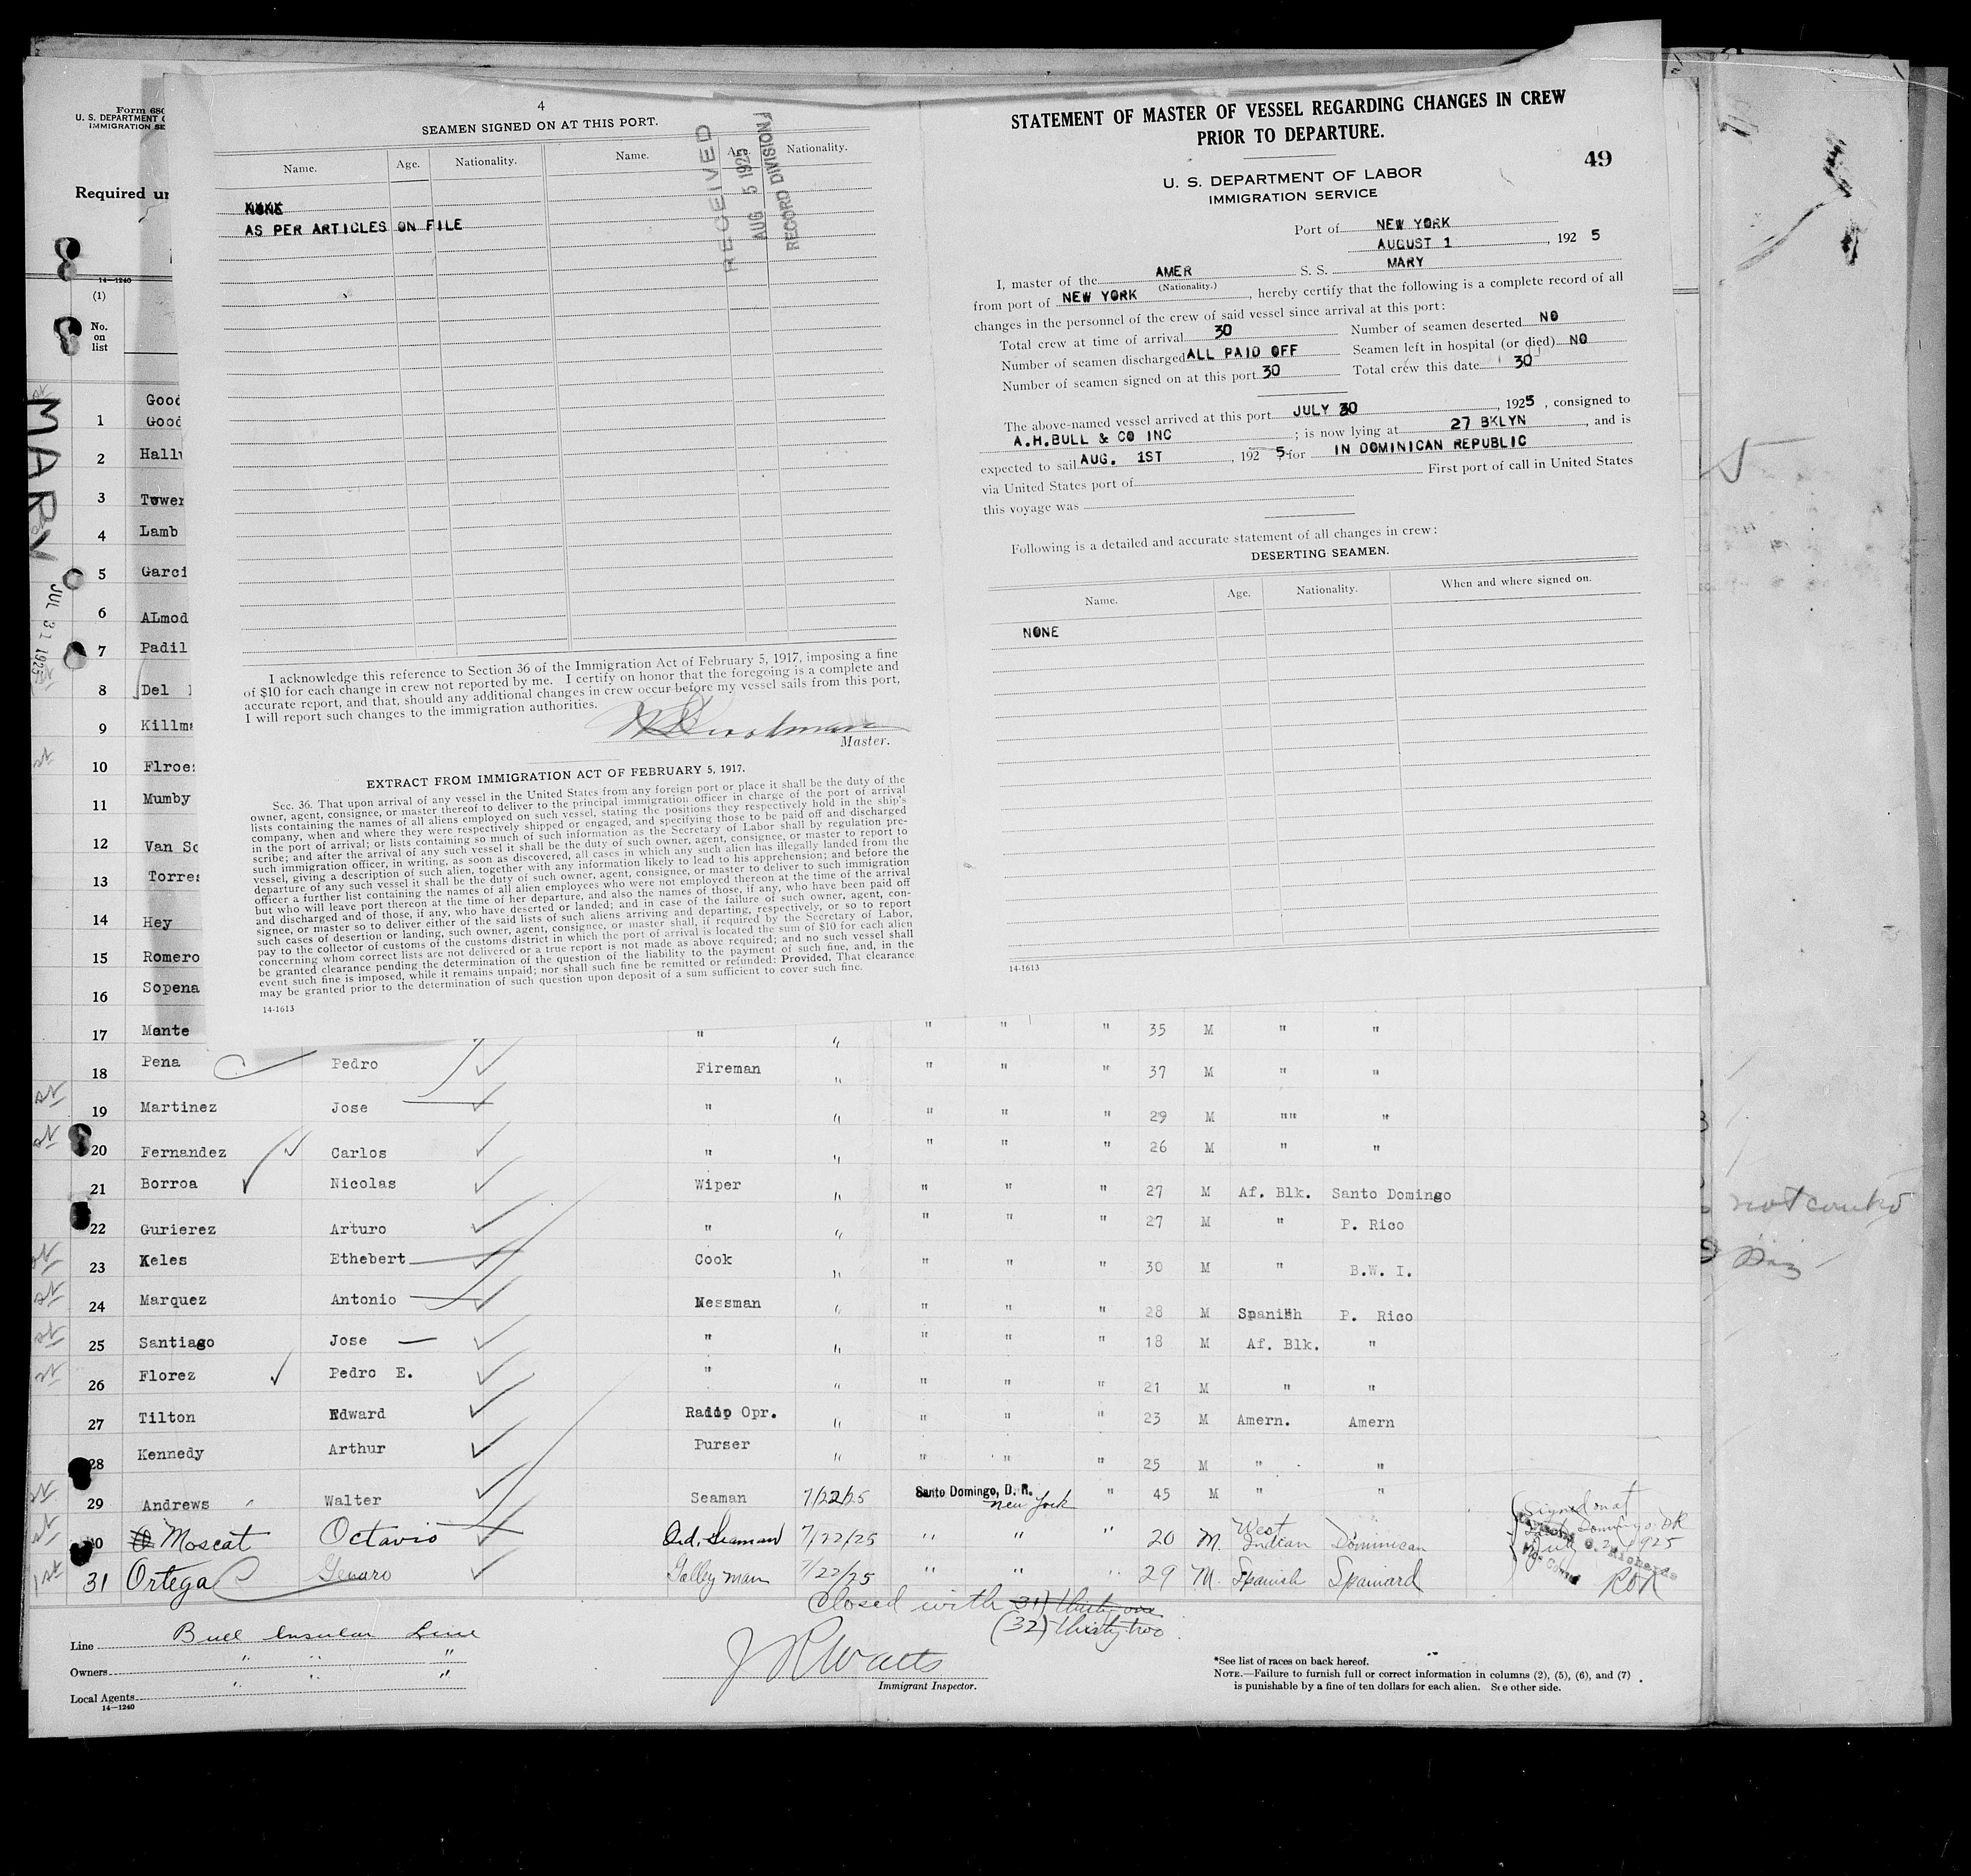 Form 680
U. S. DEPARTMENT
IMMIGRATION SE
Required un
14—1240
(1)
No.
on
list
MARY
JUL 31 1925
4
SEAMEN SIGNED ON AT THIS PORT.
Name. Age. Nationality. Name. Nationality.
RECEIVED
AUG 5 1925
RECORD DIVISION
NONE
AS PER ARTICLES ON FILE
I acknowledge this reference to Section 36 of the Immigration Act of February 5, 1917, imposing a fine
of $10 for each change in crew not reported by me. I certify on honor that the foregoing is a complete and
accurate report, and that, should any additional changes in crew occur before my vessel sails from this port,
I will report such changes to the immigration authorities.
Master.
EXTRACT FROM IMMIGRATION ACT OF FEBRUARY 5, 1917.
Sec. 36. That upon arrival of any vessel in the United States from any foreign port or place it shall be the duty of the
owner, agent, consignee, or master thereof to deliver to the principal immigration officer in charge of the port of arrival
lists containing the names of all aliens employed on such vessel, stating the positions they respectively hold in the ship's
company, when and where they were respectively shipped or engaged, and specifying those to be paid off and discharged
in the port of arrival; or lists containing so much of such information as the Secretary of Labor shall by regulation pre-
scribe; and after the arrival of any such vessel it shall be the duty of such owner, agent, consignee, or master to report to
such immigration officer, in writing, as soon as discovered, all cases in which any such alien has illegally landed from the
vessel, giving a description of such alien, together with any information likely to lead to his apprehension; and before the
departure of any such vessel it shall be the duty of such owner, agent, consignee, or master to deliver to such immigration
officer a further list containing the names of all alien employees who were not employed thereon at the time of the arrival
but who will leave port thereon at the time of her departure, and also the names of those, if any, who have been paid off
and discharged and of those, if any, who have deserted or landed; and in case of the failure of such owner, agent, con-
signee, or master so to deliver either of the said lists of such aliens arriving and departing, respectively, or so to report
such cases of desertion or landing, such owner, agent, consignee, or master shall, if required by the Secretary of Labor,
pay to the collector of customs of the customs district in which the port of arrival is located the sum of $10 for each alien
concerning whom correct lists are not delivered or a true report is not made as above required; and no such vessel shall
be granted clearance pending the determination of the question of the liability to the payment of such fine, and, in the
event such fine is imposed, while it remains unpaid; nor shall such fine be remitted or refunded: Provided, That clearance
may be granted prior to the determination of such question upon deposit of a sum sufficient to cover such fine.
14-1613
STATEMENT OF MASTER OF VESSEL REGARDING CHANGES IN CREW
PRIOR TO DEPARTURE.
49
U. S. DEPARTMENT OF LABOR
IMMIGRATION SERVICE
Port of NEW YORK
AUGUST 1, 1925
I, master of the AMER S. S. MARY
(Nationality.)
from port of NEW YORK, hereby certify that the following is a complete record of all
changes in the personnel of the crew of said vessel since arrival at this port:
Total crew at time of arrival 30 Number of seamen deserted NO
Number of seamen discharged ALL PAID OFF Seamen left in hospital (or died) NO
Number of seamen signed on at this port 30 Total crew this date 30
The above-named vessel arrived at this port JULY 30, 1925, consigned to
A.H.BULL & CO INC; is now lying at 27 BKLYN, and is
expected to sail AUG. 1ST, 1925, for IN DOMINICAN REPUBLIC
via United States port of First port of call in United States
this voyage was
Following is a detailed and accurate statement of all changes in crew:
DESERTING SEAMEN.
Name. Age. Nationality. When and where signed on.
NONE
14-1613
Good
1 Good
2 Hall
3 Tower
4 Lamb
5 Garci
6 ALmod
7 Padil
8 Del
9 Killma
10 Flroe
11 Mumby
12 Van Sc
13 Torre
14 Hey
15 Romero
16 Sopena
17 Mante " " " " " 35 M " "
18 Pena Pedro Fireman " " " " 37 M " "
19 Martinez Jose " " " " " 29 M "" "
20 Fernandez Carlos " " " " " 26 M " "
21 Borroa Nicolas Wiper " " " " 27 M Af. Blk. Santo Domingo
22 Gurierez Arturo " " " " " 27 M " P. Rico
23 Keles Ethebert Cook " " " " 30 M " B.W. I.
24 Marquez Antonio Messman " " " " 28 M Spanish P. Rico
25 Santiago Jose " " " " " 18 M Af. Blk. "
26 Florez Pedro E. " " " " " 21 M " "
27 Tilton Edward Radio Opr. " " " " 23 M Amern. Amern
28 Kennedy Arthur Purser " " " " 25 M " "
29 Andrews Walter Seaman 7/22/25 Santo Domingo, D. R. New York " 45 M " "
30 Moscat Octavio Ord. Seaman 7/22/25 " " " 20 M. West Indian Dominican
31 Ortega Genaro Galley man 7/22/25 " " " 29 M. Spanish Spaniard
Signed on at
1925
Closed with 31) thirty one
(32) thirty two
Line Bull Insular Line
Owners " " "
Local Agents " " "
14—1240
J R Watts
Immigrant Inspector.
*See list of races on back hereof.
NOTE.—Failure to furnish full or correct information in columns (2), (5), (6), and (7)
is punishable by a fine of ten dollars for each alien. See other side.